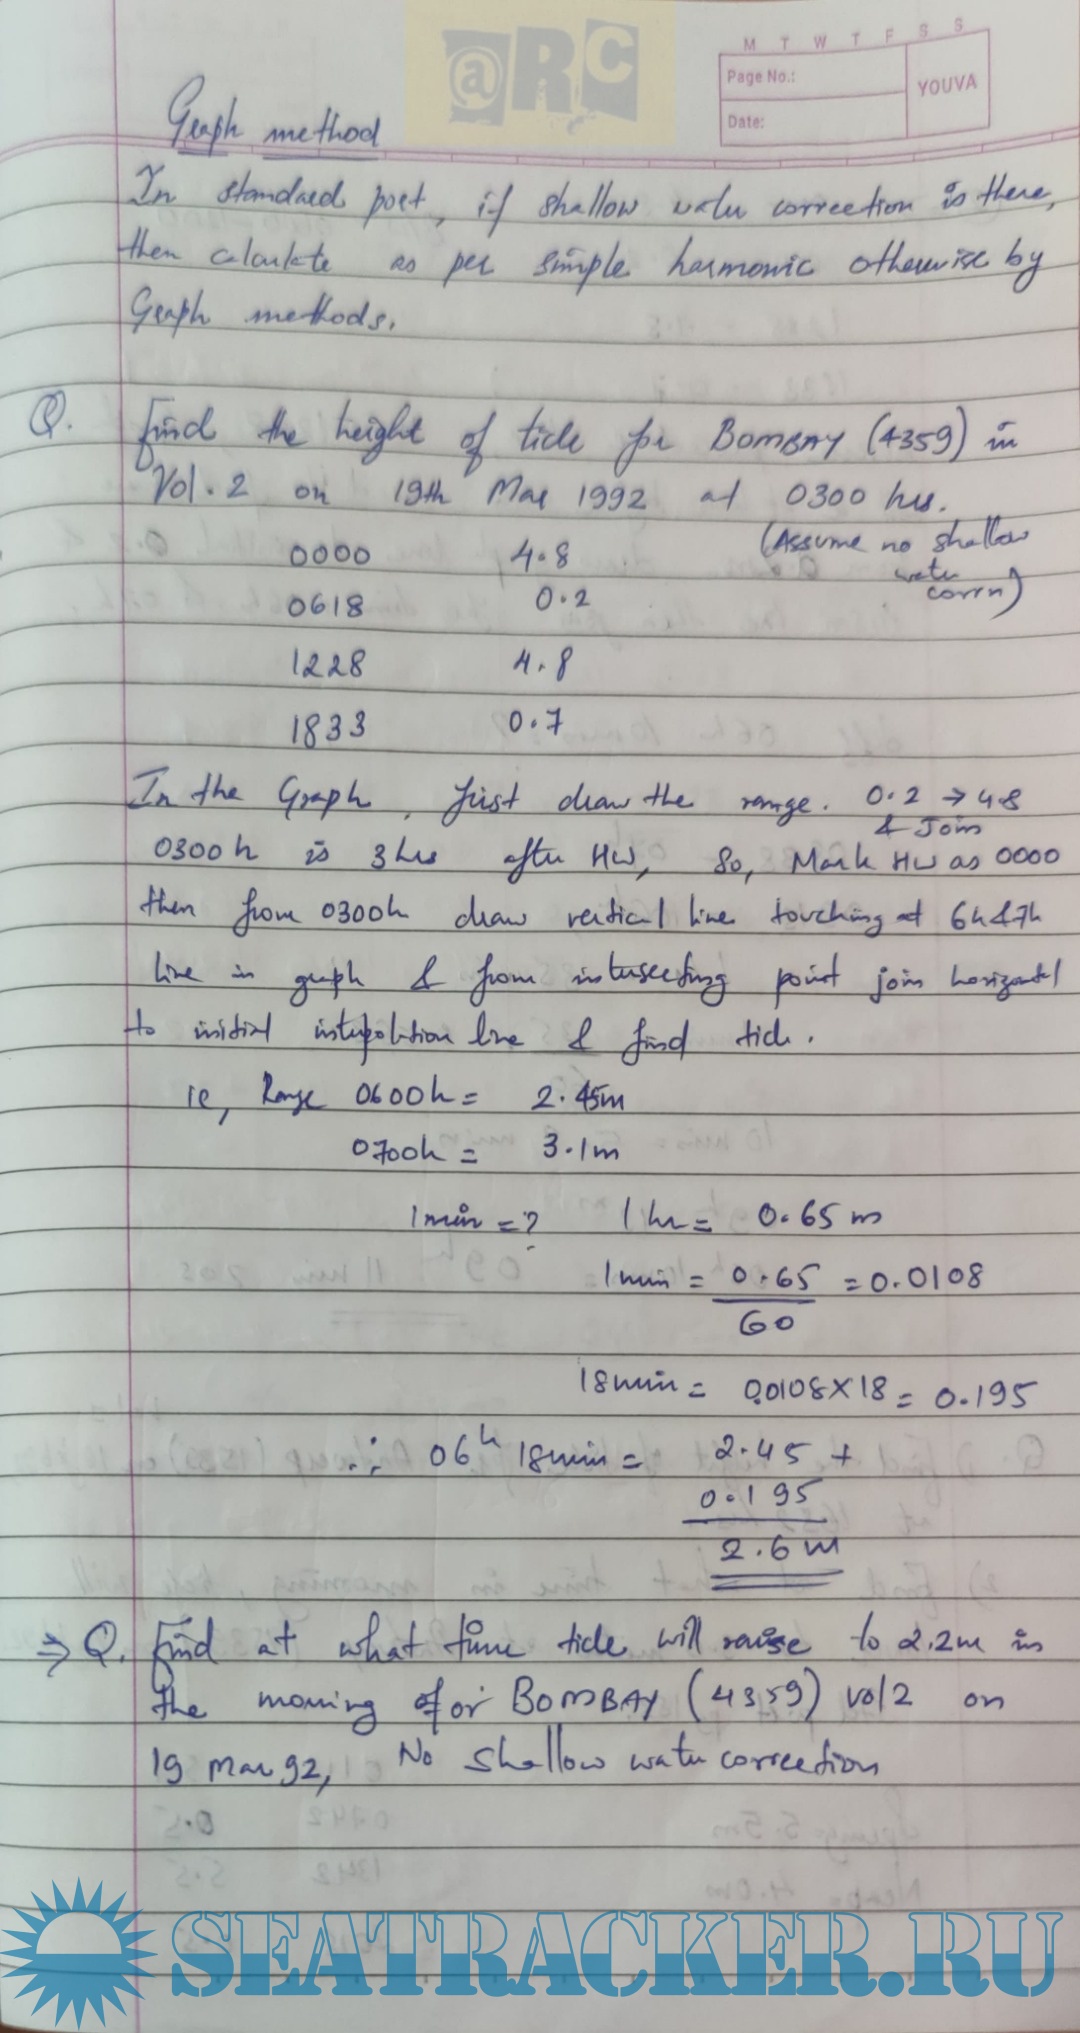 @RC
M T W T F S S
Page No.:
YOUVA
Date:
Graph method
In standard port, if shallow water correction is there,
then calculate as per simple harmonic otherwise by
Graph methods.
Q. Find the height of tide for BOMBAY (4359) in
Vol. 2 on 19th Mar 1992 at 0300 hrs.
(Assume no shallow
water
corrn)
0000 4.8
0618 0.2
1228 4.8
1833 0.7
In the Graph, first draw the range. 0.2 → 4.8
& Join
0300h is 3hrs after HW, So, Mark HW as 0000
then from 0300h draw vertical line touching at 6h&7h
line in graph & from intersecting point join horizontal
to initial interpolation line & find tide.
ie, Range 0600h = 2.45m
0700h = 3.1m
1min = ? 1 hr = 0.65 m
1min = 0.65 = 0.0108
60
18min = 0.0108 X 18 = 0.195
∴ 06h 18min = 2.45 +
0.195
2.6 m
⇒ Q. Find at what time tide will raise to 2.2m in
the morning of or BOMBAY (4359) vol 2 on
19 Mar 92, No Shallow water correction
SEATRACKER.RU